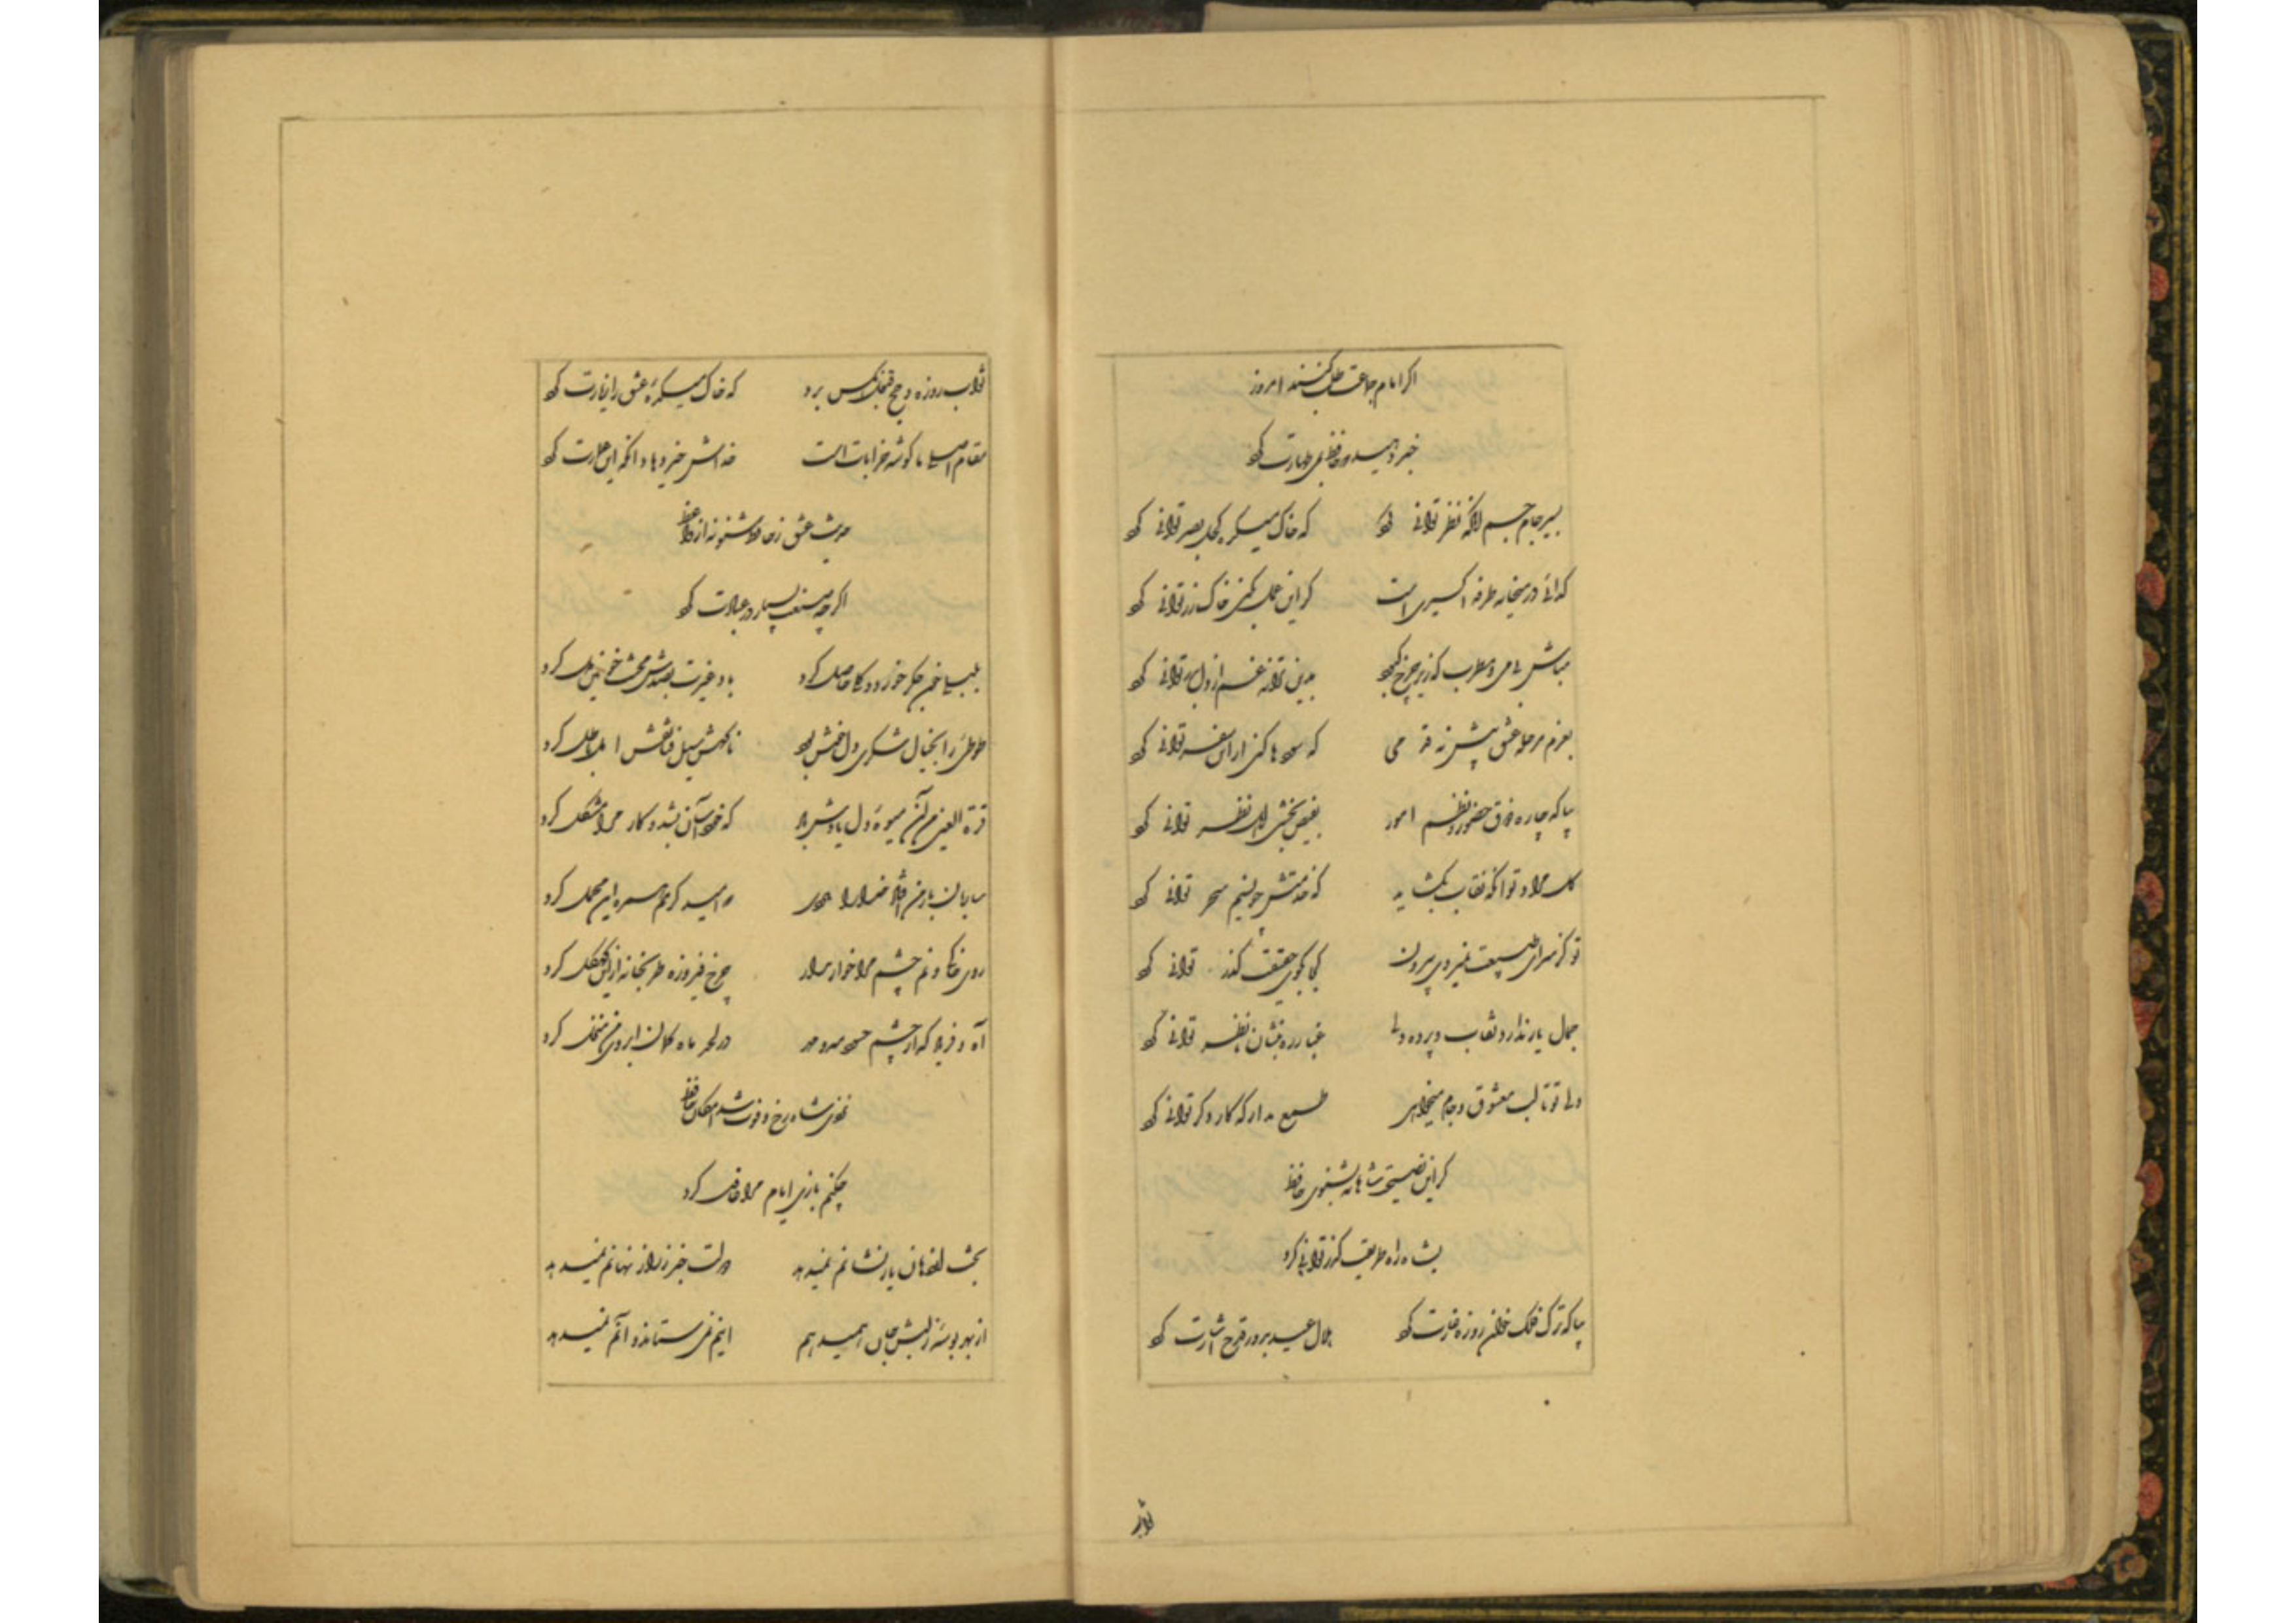 اگر امام جماعت طلب کند امروز
خبر دهید که حافظ بمی طهارت کرد
بسر جام جم آنگه نظر توانی کرد که خاک میکده کحل بصر توانی کرد
گدائی در میخانه طرفه اکسیری است گر این عمل بکنی خاک زر توانی کرد
مباش بی می و مطرب که زیر چرخ کبود بدین ترانه غم از دل بدر توانی کرد
بعزم مرحله عشق پیش نه قدمی که سودها کنی ار این سفر توانی کرد
بیا که چاره ذوق حضور و نظم امور بفیض بخشی اهل نظر توانی کرد
گل مراد تو آنگه نقاب بگشاید که خدمتش چو نسیم سحر توانی کرد
تو کز سرای طبیعت نمیروی بیرون کجا بکوی حقیقت گذر توانی کرد
جمال یار ندارد نقاب و پرده ولی غبار ره بنشان تا نظر توانی کرد
ولی تو تا لب معشوق و جام میخواهی طمع مدار که کار دگر توانی کرد
گر این نصیحت شاهانه بشنوی حافظ
بشاه راه طریقت گذر توانی کرد
بیا که ترک فلک خوان روزه غارت کرد هلال عید بدور قدح اشارت کرد
ثواب
ثواب روزه و حج قبول آنکس برد که خاک میکده عشق را زیارت کرد
مقام اصلی ما گوشه خرابات است خداش خیر دهاد آنکه این عمارت کرد
حدیث عشق ز حافظ شنو نه از واعظ
اگرچه صنعت بسیار در عبارت کرد
بلبلی خون جگر خورد و گلی حاصل کرد باد غیرت بصدش خار پریشان دل کرد
طوطئی را بخیال شکری دل خوش بود ناگهش سیل فنا نقش امل باطل کرد
قرة العین من آن میوه دل یادش باد که خود آسان بشد و کار مرا مشکل کرد
ساربان بار من افتاد خدا را مددی که امید کرمم همره این محمل کرد
روی خاکی و نم چشم مرا خوار مدار چرخ فیروزه طربخانه ازین کهگل کرد
آه و فریاد که از چشم حسود مه و مهر در لحد ماه کمان ابروی من منزل کرد
نزدی شاه رخ و فوت شد امکان حافظ
چکنم بازی ایام مرا غافل کرد
بخت از دهان یار نشانم نمیدهد دولت خبر ز راز نهانم نمیدهد
از بهر بوسه ز لبش جان همیدهم اینم نمی ستاند و آنم نمیدهد